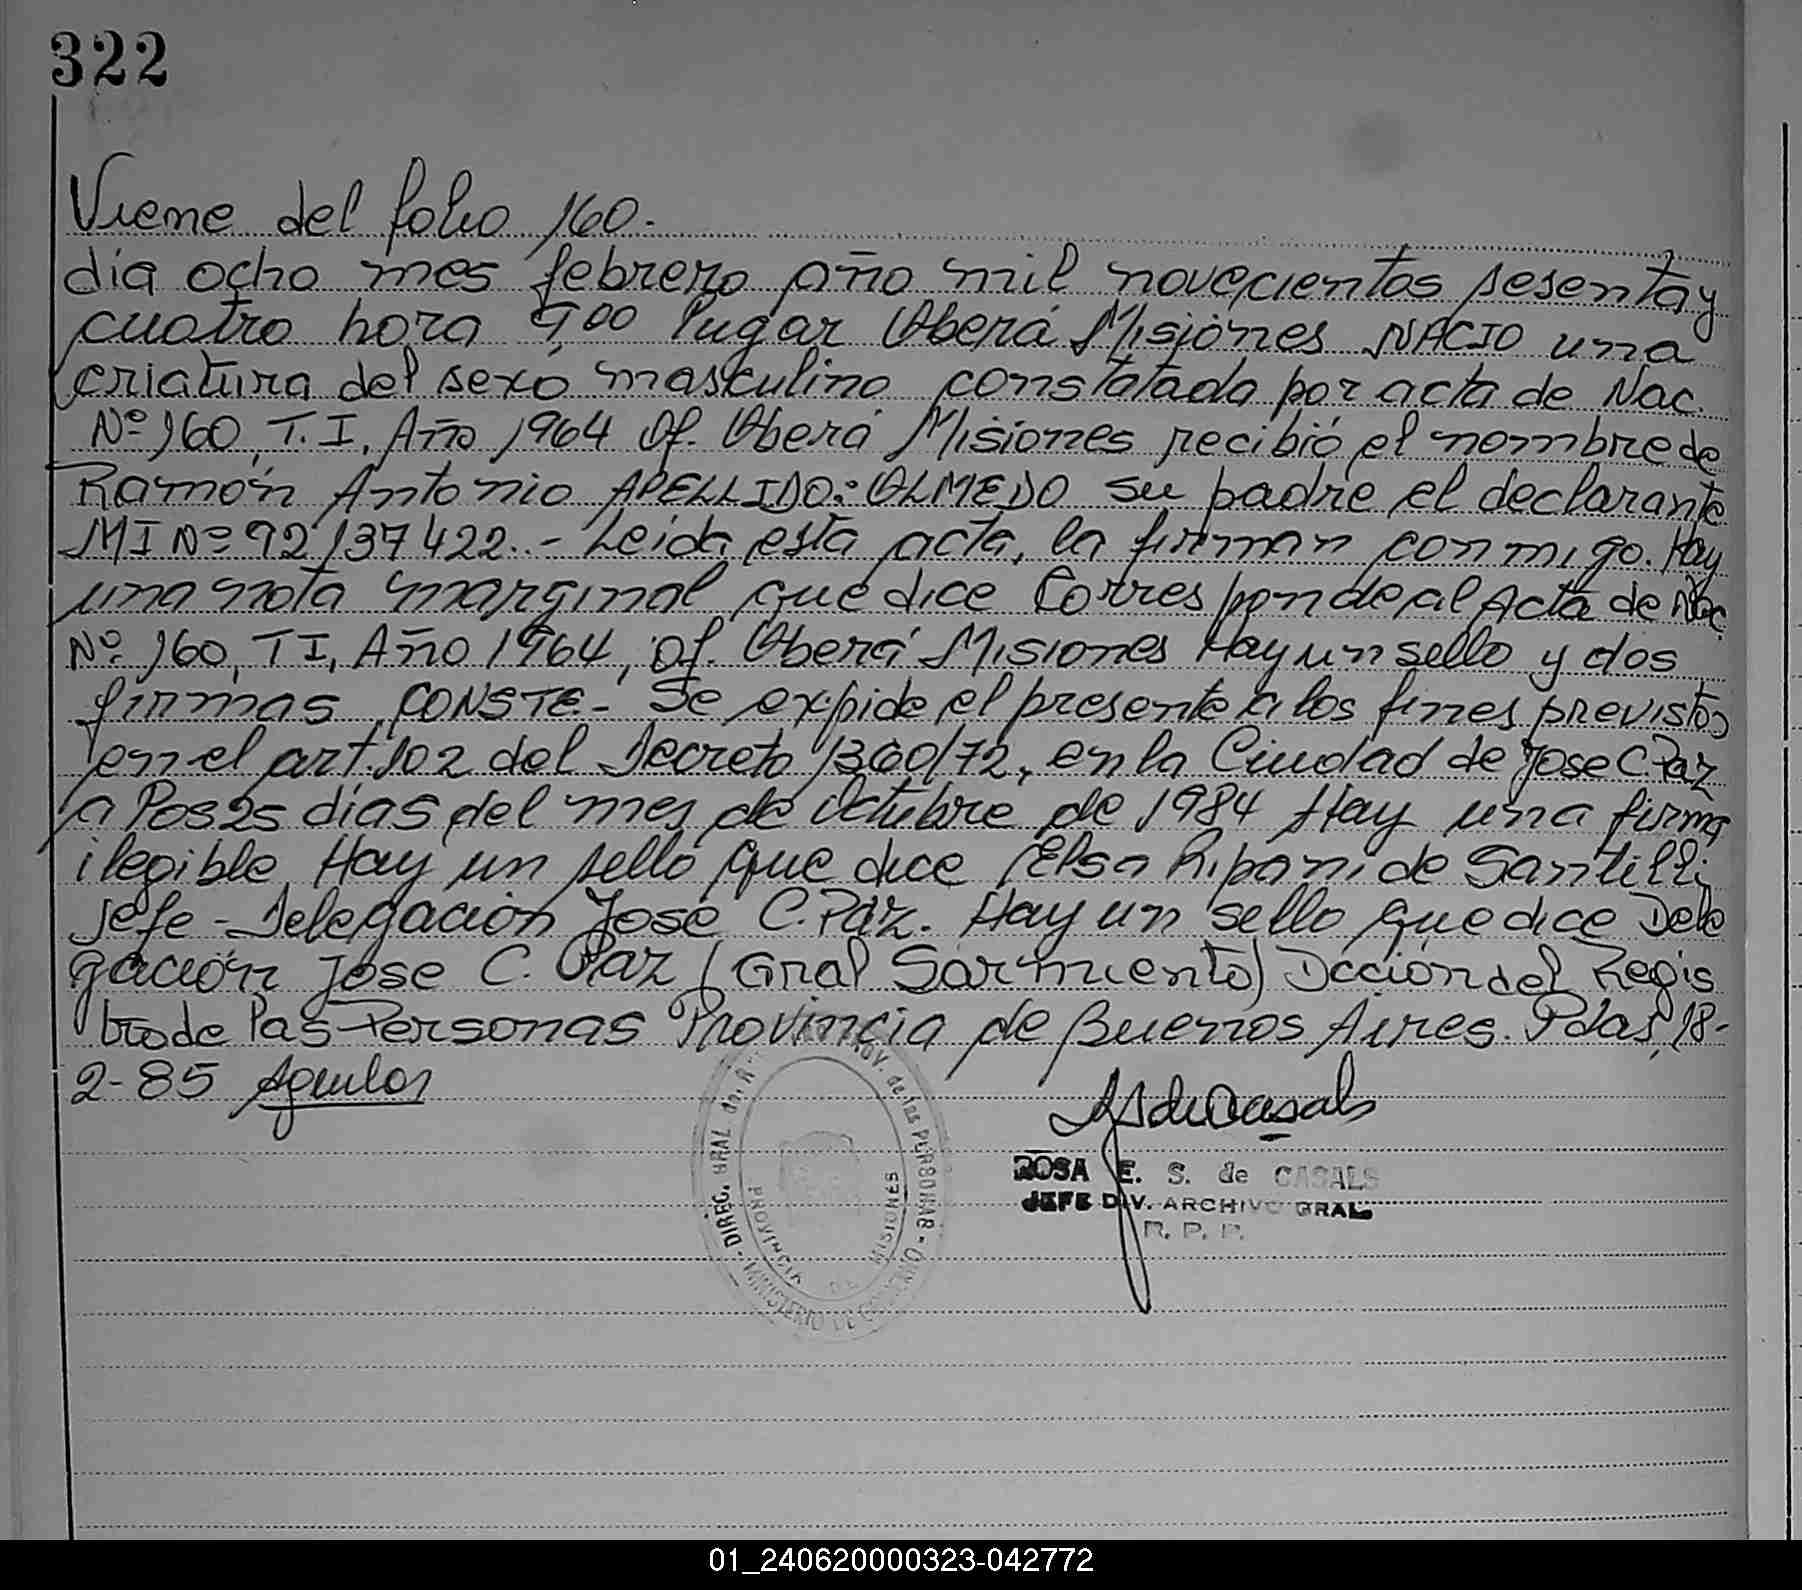 322
Viene del folio 160.
dia ocho mes febrero año mil novecientos sesenta y
cuatro hora 9,00 lugar Oberá Misiones NACIO una
criatura del sexo masculino constatada por acta de Nac.
Nº 160, T. I, Año 1964 Of. Oberá Misiones recibió el nombre de
Ramón Antonio APELLIDO: OLMEDO su padre el declarante
MI Nº 92137422.- Leida esta acta, la firman conmigo. Hay
una nota marginal que dice Corresponde al Acta de Nac.
Nº 160, TI, Año 1964, Of. Oberá Misiones Hay un sello y dos
firmas CONSTE- Se expide el presente a los fines previstos
en el art. 102 del Decreto 1360/72, en la Ciudad de Jose C. Paz
a los 25 dias del mes de Octubre de 1984 Hay una firma
ilegible Hay un sello que dice Elsa Ripani de Santilli
Jefe - Delegación José C. Paz. Hay un sello que dice Dele
gación Jose C. Paz (Gral Sarmiento) Dcción del Regis
tro de las Personas Provincia de Buenos Aires. Pdas, 18-
2-85
DIREC. GRAL. del R. PROV. de las PERSONAS - MINISTERIO DE GOBIERNO
PROVINCIA DE MISIONES
ROSA E. S. de CASALS
JEFE DIV. ARCHIVO GRAL.
R. P. P.
01_240620000323-042772